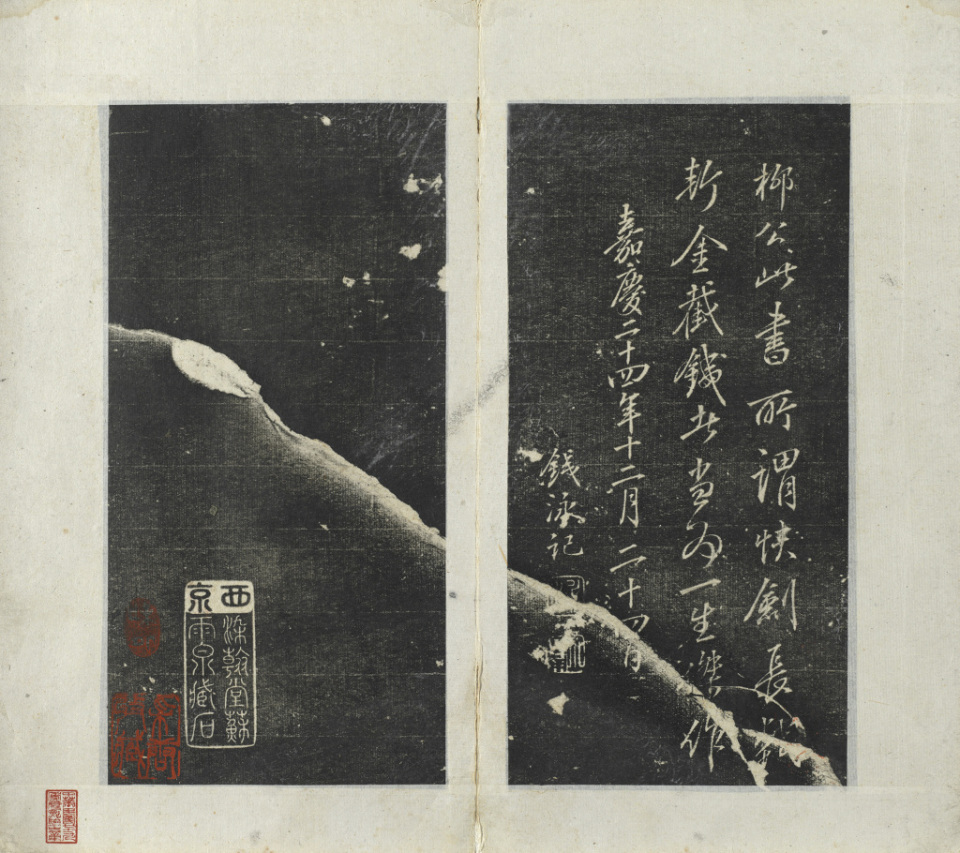 柳公此書所謂快劍長戟
斬金截鐵者當為一生傑作
嘉慶二十四年十二月二十四日
錢泳記
西京
染翰堂蘇
雨泉藏石